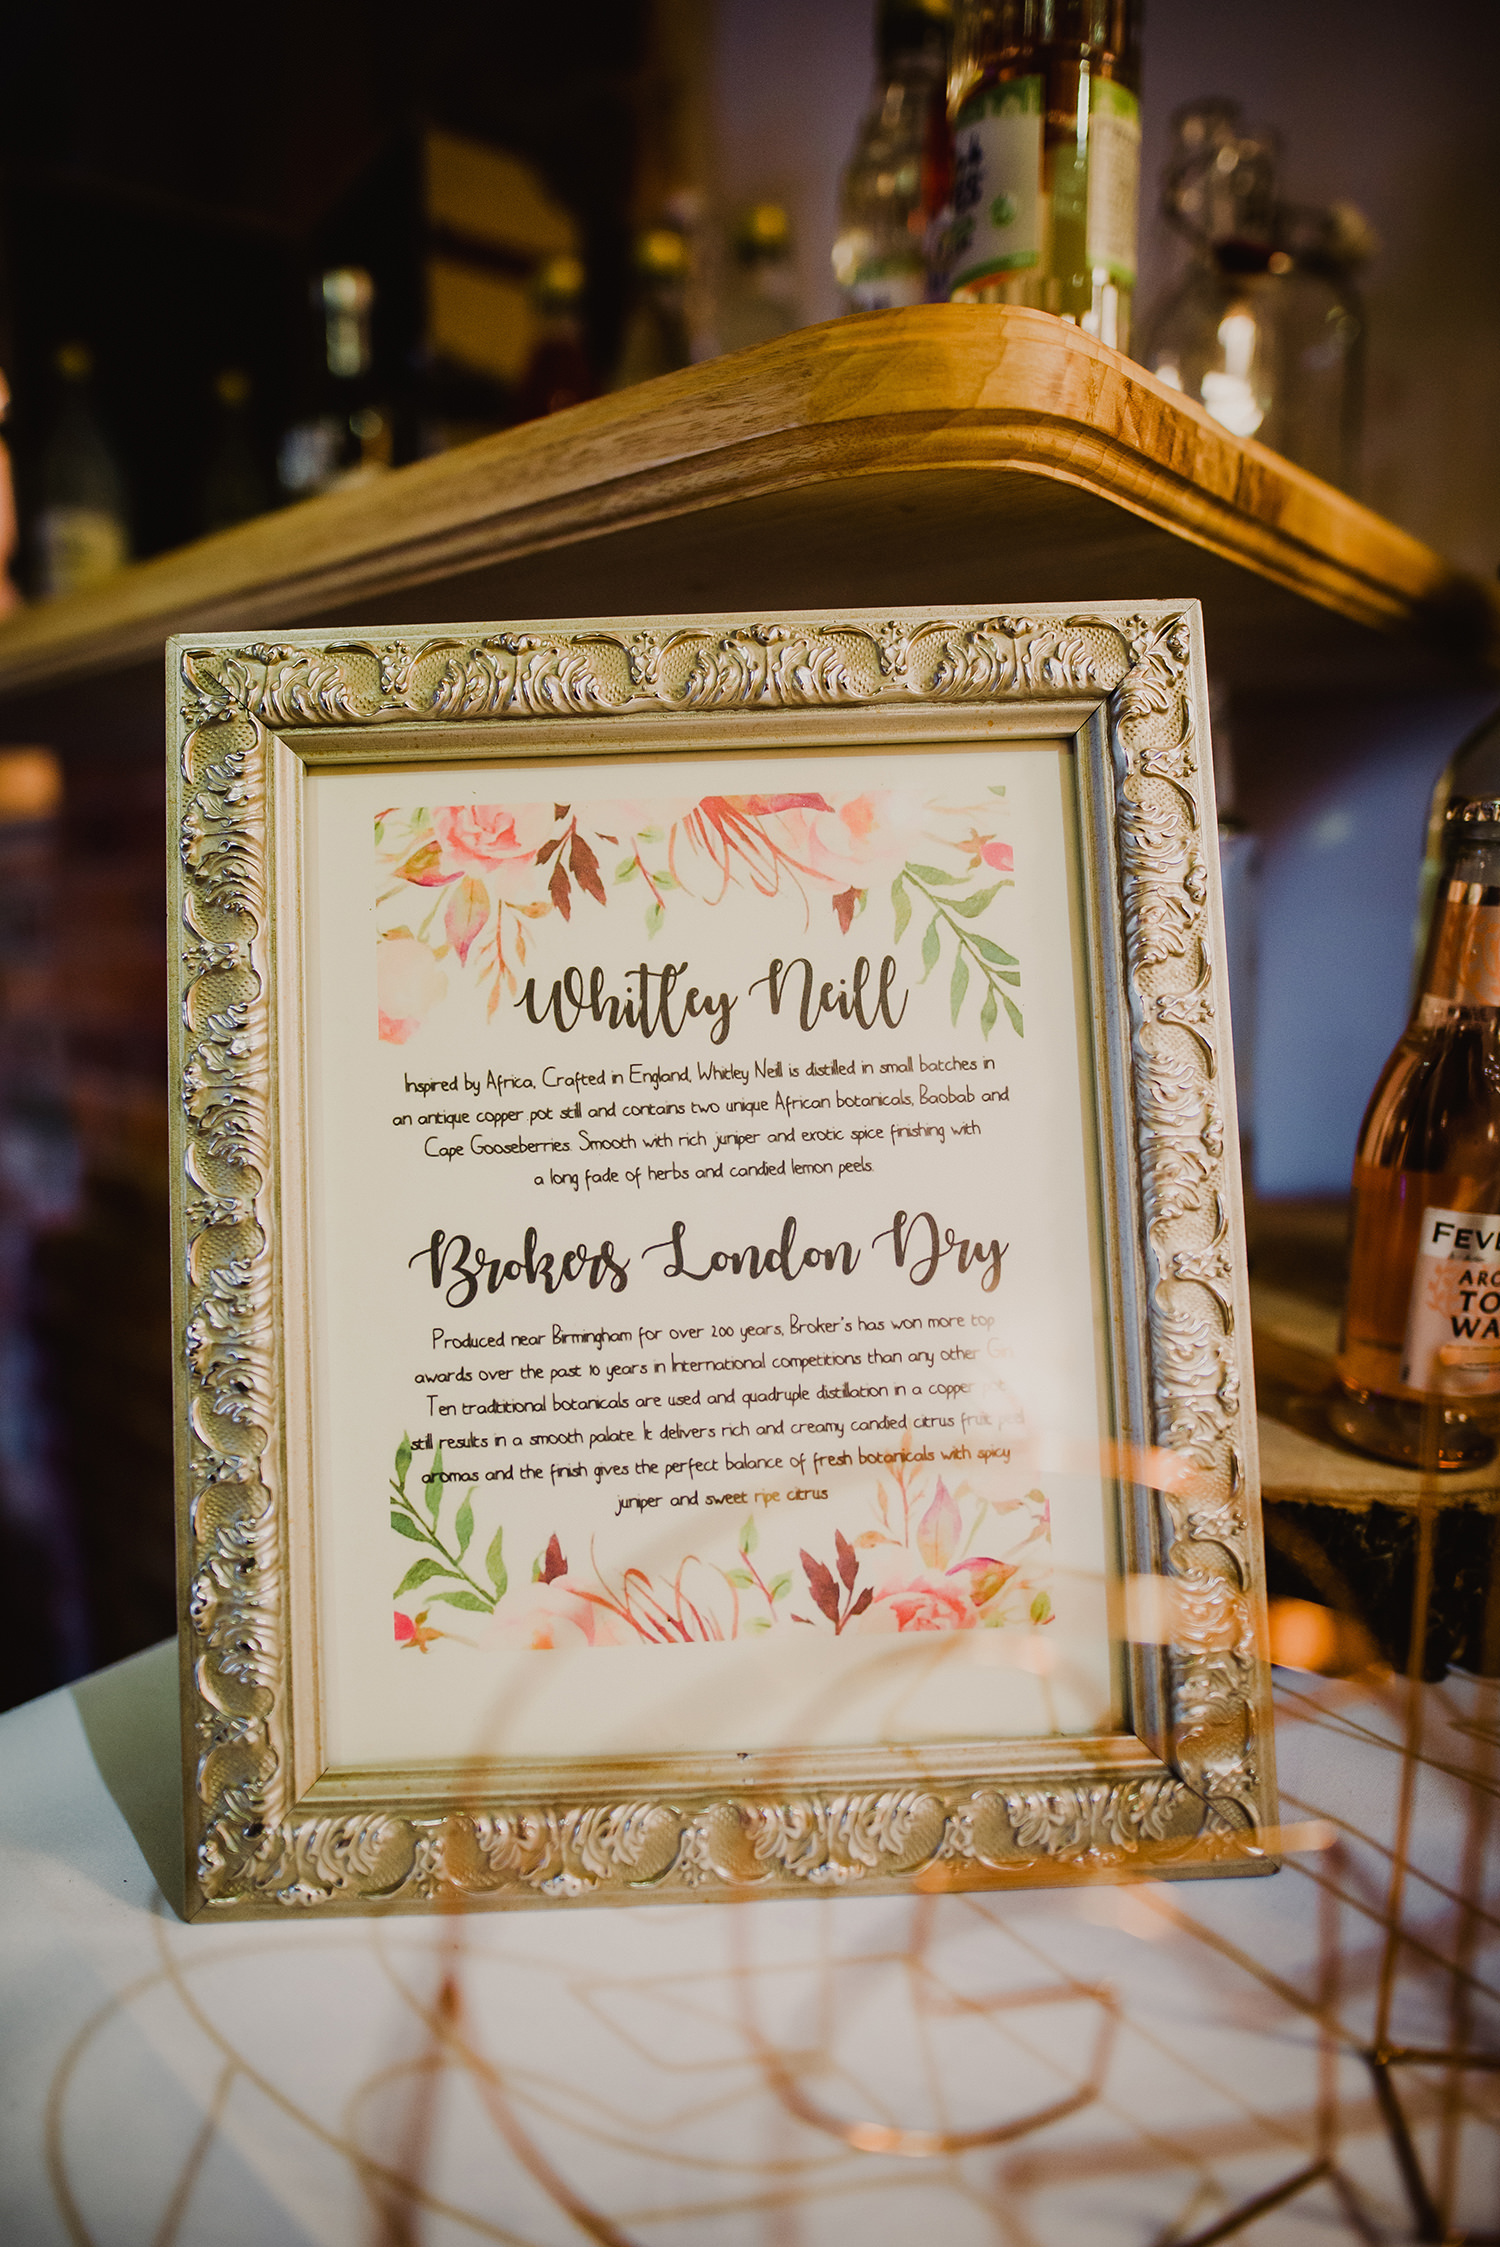 Whitley Neill
Inspired by Africa, Crafted in England, Whitley Neill is distilled in small batches in
an antique copper pot still and contains two unique African botanicals, Baobab and
Cape Gooseberries. Smooth with rich juniper and exotic spice finishing with
a long fade of herbs and candied lemon peels.
Brokers London Dry
Produced near Birmingham for over 200 years, Broker's has won more top
awards over the past 10 years in International competitions than any other Gin.
Ten tradtitional botanicals are used and quadruple distillation in a copper pot
still results in a smooth palate. It delivers rich and creamy candied citrus fruit peel
aromas and the finish gives the perfect balance of fresh botanicals with spicy
juniper and sweet ripe citrus
FEVE
ARO
TO
WA